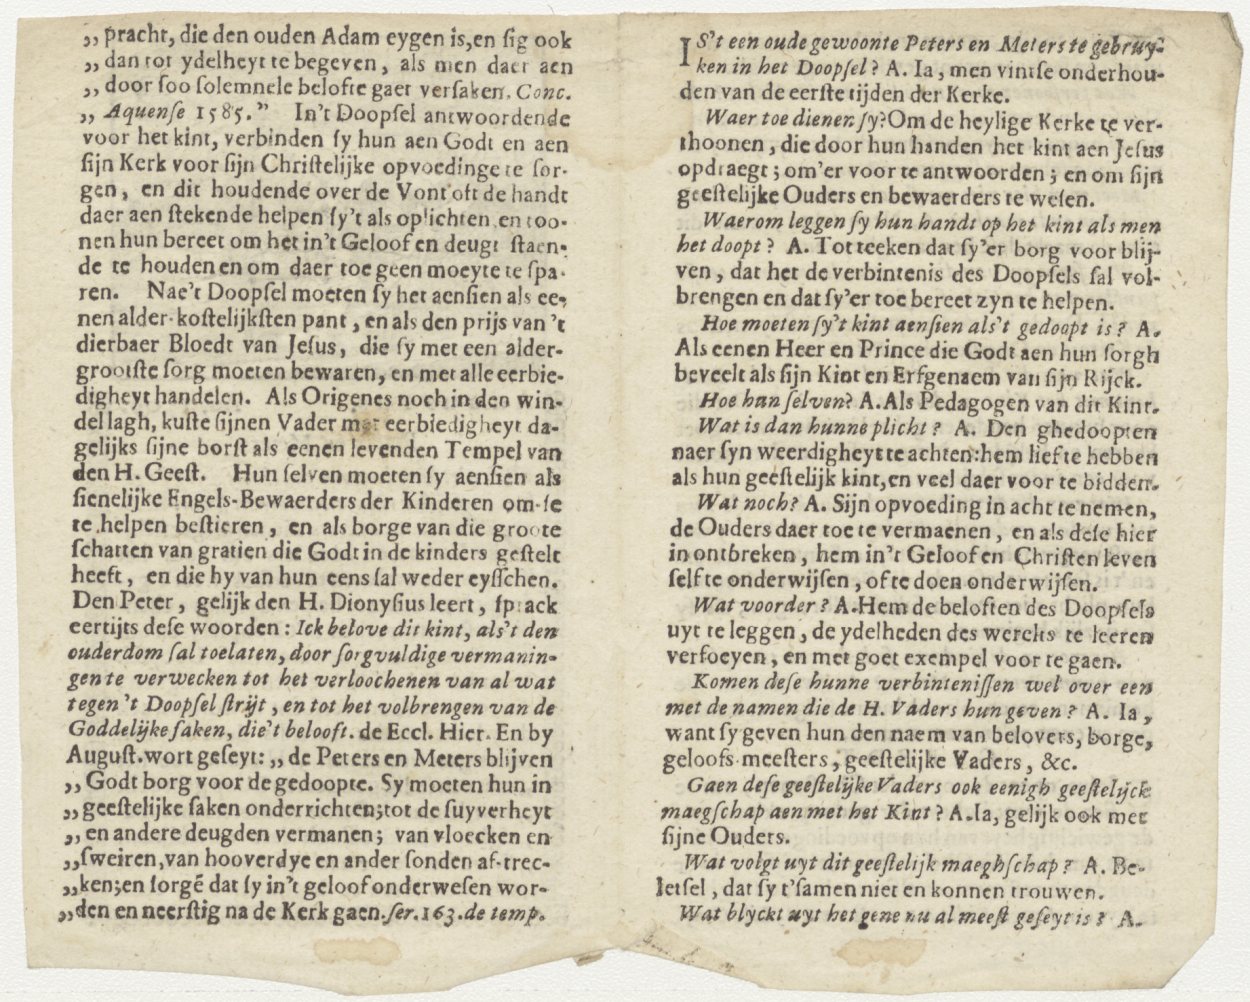 „ pracht, die den ouden Adam eygen is,en ſig ook
„ dan tot ydelheyt te begeven, als men daer aen
„ door ſoo ſolemnele belofte gaet verſaken. Conc.
„ Aquenſe 1585.” In’t Doopſel antwoordende
voor het kint, verbinden ſy hun aen Godt en aen
ſijn Kerk voor ſijn Chriſtelijke opvoedinge te ſor-
gen, en dit houdende over de Vont oft de handt
daer aen ſtekende helpen ſy’t als oplichten en too-
nen hun bereet om het in’t Geloof en deugt ſtaen-
de te houden en om daer toe geen moeyte te ſpa-
ren. Nae’t Doopſel moeten ſy het aenſien als ee-
nen alder-koſtelijkſten pant, en als den prijs van ’t
dierbaer Bloedt van Jeſus, die ſy met een alder-
grootſte ſorg moeten bewaren, en met alle eerbie-
digheyt handelen. Als Origenes noch in den win-
del lagh, kuſte ſijnen Vader met eerbiedigheyt da-
gelijks ſijne borſt als eenen levenden Tempel van
den H. Geeſt. Hun ſelven moeten ſy aenſien als
ſienelijke Engels-Bewaerders der Kinderen om-ſe
te helpen beſtieren, en als borge van die groote
ſchatten van gratien die Godt in de kinders geſtelt
heeft, en die hy van hun eens ſal weder eyſſchen.
Den Peter, gelijk den H. Dionyſius leert, ſprack
eertijts deſe woorden: Ick belove dit kint, als’t den
ouderdom ſal toelaten, door ſorgvuldige vermanin-
gen te verwecken tot het verloochenen van al wat
tegen ’t Doopſel ſtrijt, en tot het volbrengen van de
Goddelijke ſaken, die’t belooft. de Eccl. Hier. En by
Auguſt. wort geſeyt: „ de Peters en Meters blijven
„ Godt borg voor de gedoopte. Sy moeten hun in
„ geeſtelijke ſaken onderrichten;tot de ſuyverheyt
„ en andere deugden vermanen; van vloecken en
„ ſweiren,van hooverdye en ander ſonden af-trec-
„ ken;en ſorgẽ dat ſy in’t geloof onderweſen wor-
„ den en neerſtig na de Kerk gaen.ſer.163.de temp.
IS’t een oude gewoonte Peters en Meters te gebruy-
ken in het Doopſel? A. Ia, men vintſe onderhou-
den van de eerſte tijden der Kerke.
Waer toe dienen ſy?Om de heylige Kerke te ver-
thoonen, die door hun handen het kint aen Jeſus
opdraegt; om’er voor te antwoorden; en om ſijn
geeſtelijke Ouders en bewaerders te weſen.
Waerom leggen ſy hun handt op het kint als men
het doopt? A. Tot teeken dat ſy’er borg voor blij-
ven, dat het de verbintenis des Doopſels ſal vol-
brengen en dat ſy’er toe bereet zyn te helpen.
Hoe moeten ſy’t kint aenſien als’t gedoopt is? A.
Als eenen Heer en Prince die Godt aen hun ſorgh
beveelt als ſijn Kint en Erfgenaem van ſijn Rijck.
Hoe hun ſelven? A.Als Pedagogen van dit Kint.
Wat is dan hunne plicht? A. Den ghedoopten
naer ſyn weerdigheyt te achten:hem lief te hebben
als hun geeſtelijk kint,en veel daer voor te bidden.
Wat noch? A. Sijn opvoeding in acht te nemen,
de Ouders daer toe te vermaenen, en als deſe hier
in ontbreken, hem in’t Geloof en Chriſten leven
ſelf te onderwijſen, of te doen onderwijſen.
Wat voorder? A.Hem de beloften des Doopſels
uyt te leggen, de ydelheden des werelts te leeren
verfoeyen, en met goet exempel voor te gaen.
Komen deſe hunne verbinteniſſen wel over een
met de namen die de H. Vaders hun geven? A. Ia,
want ſy geven hun den naem van belovers, borge,
geloofs-meeſters, geeſtelijke Vaders, &c.
Gaen deſe geeſtelijke Vaders ook eenigh geeſtelijck
maegſchap aen met het Kint? A.Ia, gelijk ook met
ſijne Ouders.
Wat volgt uyt dit geeſtelijk maeghſchap? A. Be-
letſel, dat ſy t’ſamen niet en konnen trouwen.
Wat blyckt uyt het gene nu al meeſt geſeyt is? A.